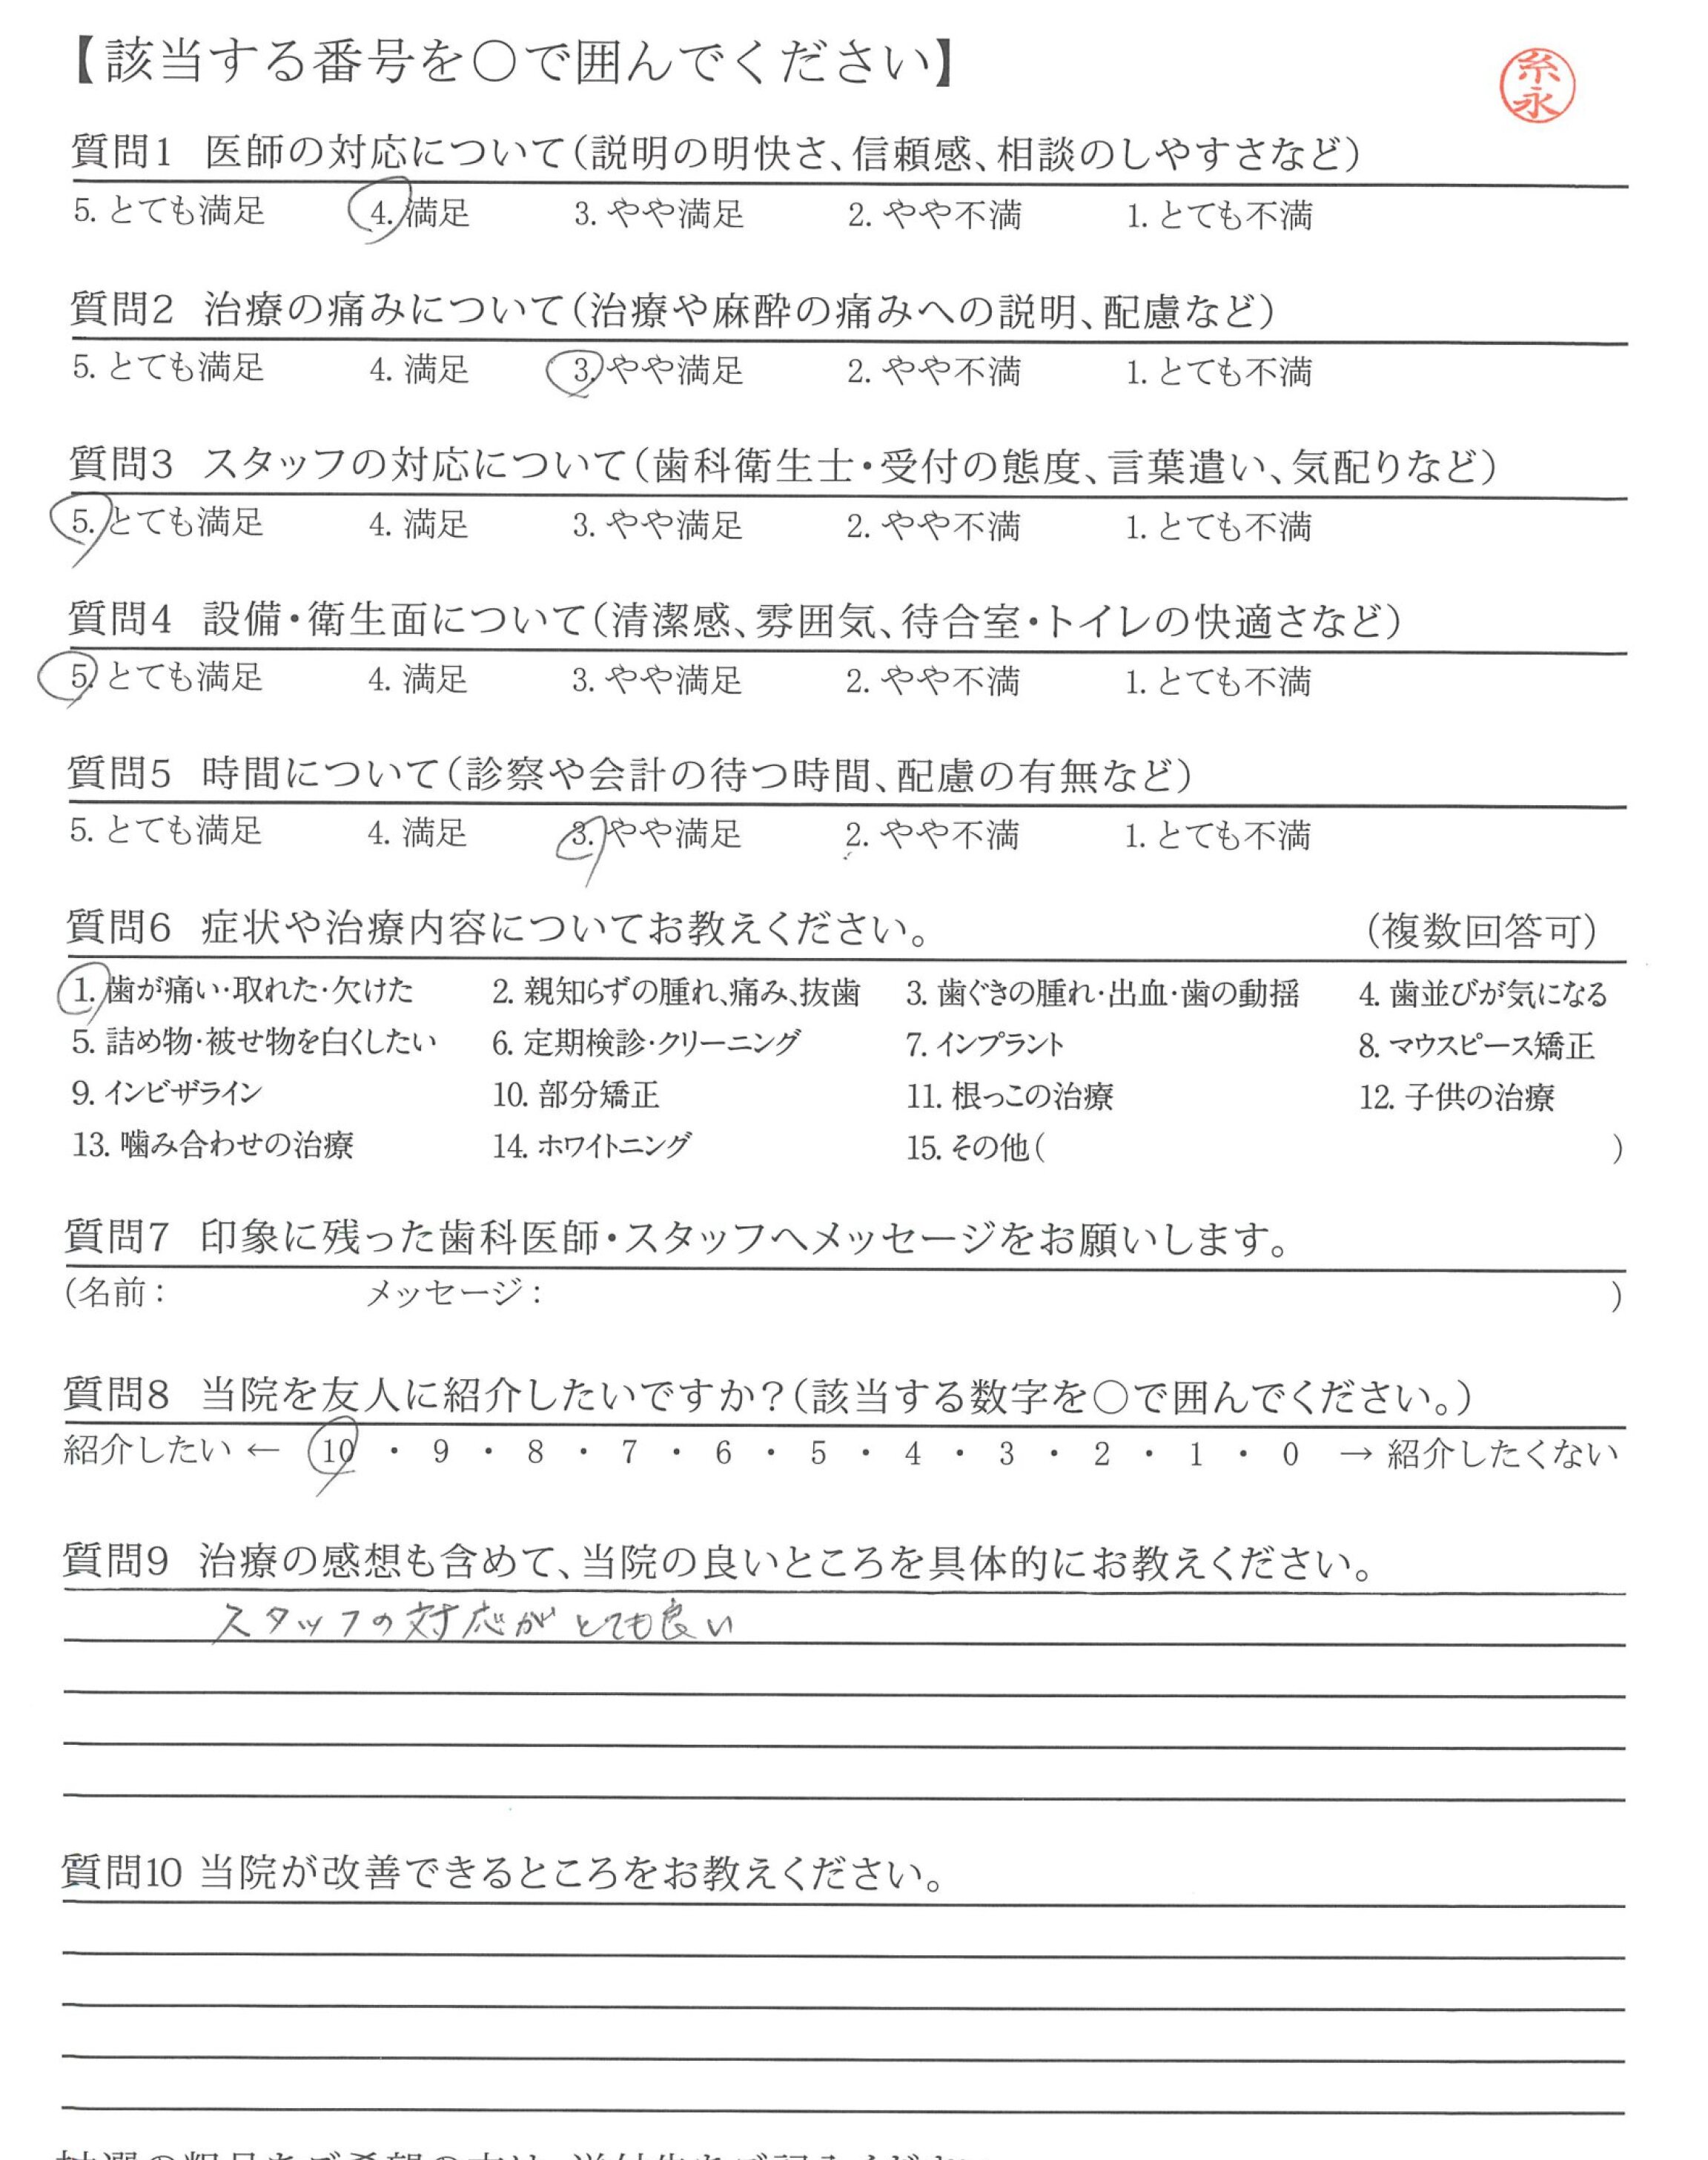 【該当する番号を○で囲んでください】
糸永
質問1 医師の対応について(説明の明快さ、信頼感、相談のしやすさなど)
5. とても満足 4. 満足 3. やや満足 2. やや不満 1. とても不満
質問2 治療の痛みについて(治療や麻酔の痛みへの説明、配慮など)
5. とても満足 4. 満足 3. やや満足 2. やや不満 1. とても不満
質問3 スタッフの対応について(歯科衛生士・受付の態度、言葉遣い、気配りなど)
5. とても満足 4. 満足 3. やや満足 2. やや不満 1. とても不満
質問4 設備・衛生面について(清潔感、雰囲気、待合室・トイレの快適さなど)
5. とても満足 4. 満足 3. やや満足 2. やや不満 1. とても不満
質問5 時間について(診察や会計の待つ時間、配慮の有無など)
5. とても満足 4. 満足 3. やや満足 2. やや不満 1. とても不満
質問6 症状や治療内容についてお教えください。 (複数回答可)
1. 歯が痛い・取れた・欠けた 2. 親知らずの腫れ、痛み、抜歯 3. 歯ぐきの腫れ・出血・歯の動揺 4. 歯並びが気になる
5. 詰め物・被せ物を白くしたい 6. 定期検診・クリーニング 7. インプラント 8. マウスピース矯正
9. インビザライン 10. 部分矯正 11. 根っこの治療 12. 子供の治療
13. 噛み合わせの治療 14. ホワイトニング 15. その他( )
質問7 印象に残った歯科医師・スタッフへメッセージをお願いします。
(名前: メッセージ: )
質問8 当院を友人に紹介したいですか?(該当する数字を○で囲んでください。)
紹介したい ← 10 ・ 9 ・ 8 ・ 7 ・ 6 ・ 5 ・ 4 ・ 3 ・ 2 ・ 1 ・ 0 → 紹介したくない
質問9 治療の感想も含めて、当院の良いところを具体的にお教えください。
スタッフの対応がとても良い
質問10 当院が改善できるところをお教えください。